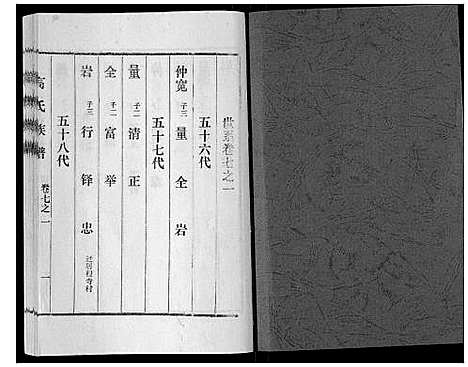 世系卷七之一
五十六代
仲宽 子三 量 全 岩
五十七代
量 子二 清 正
全 子二 富 举
岩 子三 行 铎 忠
五十八代
高氏族谱 卷七之一 一